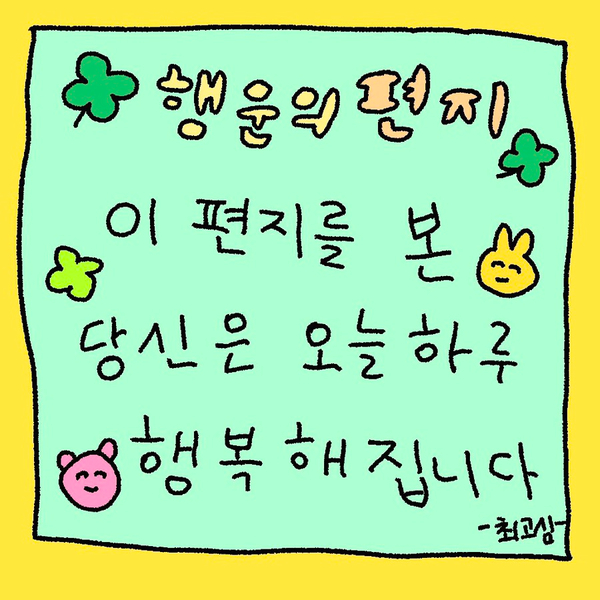 행운의 편지
이 편지를 본
당신은 오늘 하루
행복해집니다
-최고심-